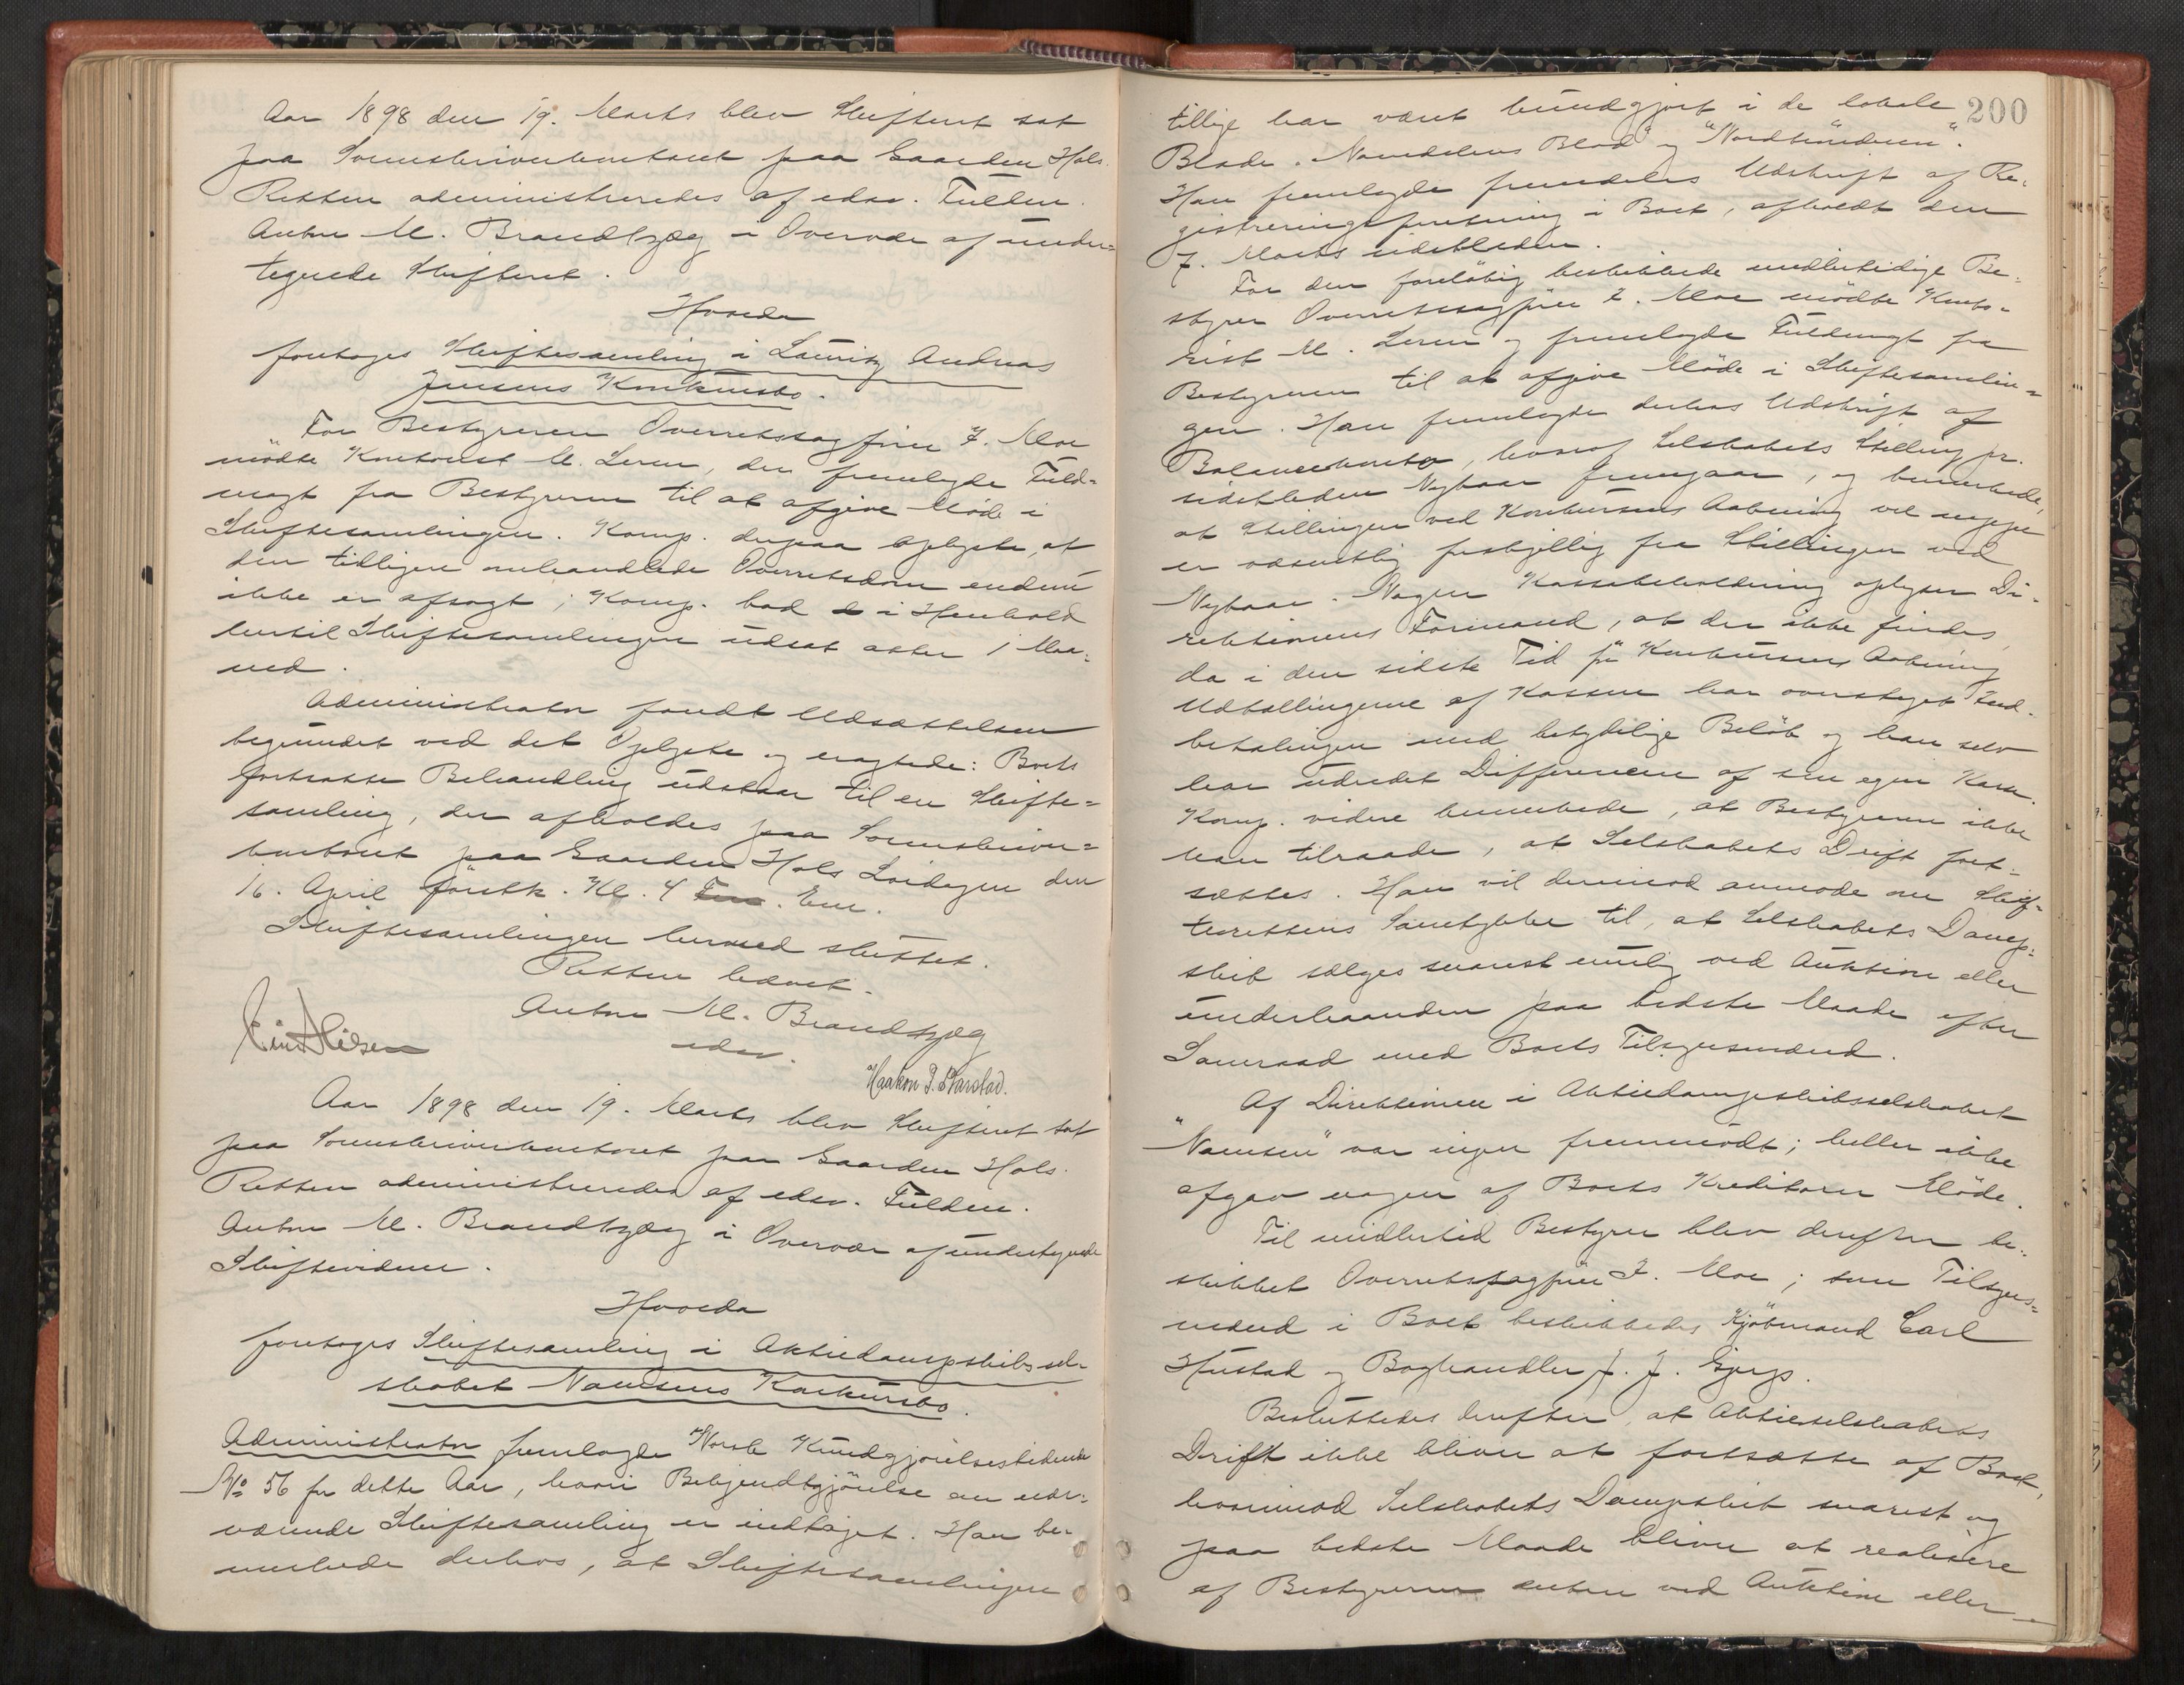 Aar 1898 den 19. Marts blev Skifteret sat
paa Sorenskriverkontoret paa Gaarden Hals.
Retten administreredes af edsv. Fuldm.
Anton M. Brandtzæg i Overvær af under=
tegnede Skifteret.
Hvorda
foretoges Skiftesamling i Lauritz Andreas
Jensens Konkursbo.
For Bestyreren Overretssagfører F. Moe
mödte Kontorist M. Leren, der fremlagde Fuld=
magt fra Bestyreren til at afgive Möde i
Skiftesamlingen. Komp. derpaa oplyste, at
den tidligere omhandlede Overretsdom endnu
ikke er afsagt; Komp. bad i Henhold
hertil Skiftesamlingen udsat atter 1 Maa=
ned.
Administrator fandt Udsættelsen
begrundet ved det Oplyste og eragtede: Boets
fortsatte Behandling udstaar til en Skifte=
samling, der afholdes paa Sorenskriver=
kontoret paa Gaarden Hals Lördagen den
16. April förstk. Kl. 4 Fm. Em.
Skiftesamlingen hermed sluttet.
Retten hævet.
Anton M. Brandtzæg
edsv.
Haakon P. Barstad.
Aar 1898 den 19. Marts blev Skifteret sat
paa Sorenskriverkontoret paa Gaarden Hals.
Retten administreredes af edsv. Fuldm.
Anton M. Brandtzæg i Overvær af undertegnede
Skiftevidner.
Hvorda
foretoges Skiftesamling i Aktiedampskibssel-
skabet Namsens Konkursbo.
Administrator fremlagde Norsk Kundgjörelsestidende
No 56 for dette Aar, hvori Bekjendtgjörelse om nær-
værende Skiftesamling er indtaget. Han be-
mærkede derhos, at Skiftesamlingen
200
tillige har været kundgjort i de lokale
Blade "Namdalens Blad" og "Nordtrönderen".
Han fremlagde fremdeles Udskrift af Re-
gistreringsforretning i Boet, afholdt den
7. Marts sidstleden.
For den foreløbig beskikkede midlertidige Be-
styrer Overretssagfører F. Moe mödte Konto-
rist M. Leren og fremlagde Fuldmagt fra
Bestyreren til at afgive Möde i Skiftesamlin=
gen. Han fremlagde derhos Udskrift af
Balancekonto, hvoraf Selskabets Stilling pr.
sidstleden Nytaar fremgaar, og bemærkede,
at Stillingen ved Konkursens Aabning vel neppe
er væsentlig forskjellig fra Stillingen ved
Nytaar. Nogen Kassebeholdning oplyser Di-
rektionens Formand, at der ikke findes,
da i den sidste Tid för Konkursens Aabning
Udtællingerne af Kassen har oversteget Ind-
betalingen med betydelige Belöb og han selv
har udredet Differencen af sin egen Kasse.
Komp. videre bemærkede, at Bestyreren ikke
kan tilraade, at Selskabets Drift fort=
sættes. Han vil derimod anmode om Skif=
terettens Samtykke til, at Selskabets Damp=
skib sælges snarest mulig ved Auktion eller
underhaanden paa bedste Maade efter
Samraad med Boets Tilsynsmænd.
Af Direktionen i Aktiedampskibsselskabet
"Namsen" var ingen fremmödt; heller ikke
afgav nogen af Boets Kreditorer Möde.
Til midlertid Bestyrer blev derefter be-
skikket Overretssagfører F. Moe; som Tilsyns=
mænd i Boet beskikkedes Kjöbmand Carl
Hustad og Boghandler J. J.
Besluttedes derefter, at Aktieselskabets
Drift ikke bliver at fortsætte af Boet,
hvorimod Selskabets Dampskib snarest og
paa bedste Maade bliver at realisere
af Bestyreren enten ved Auktion eller